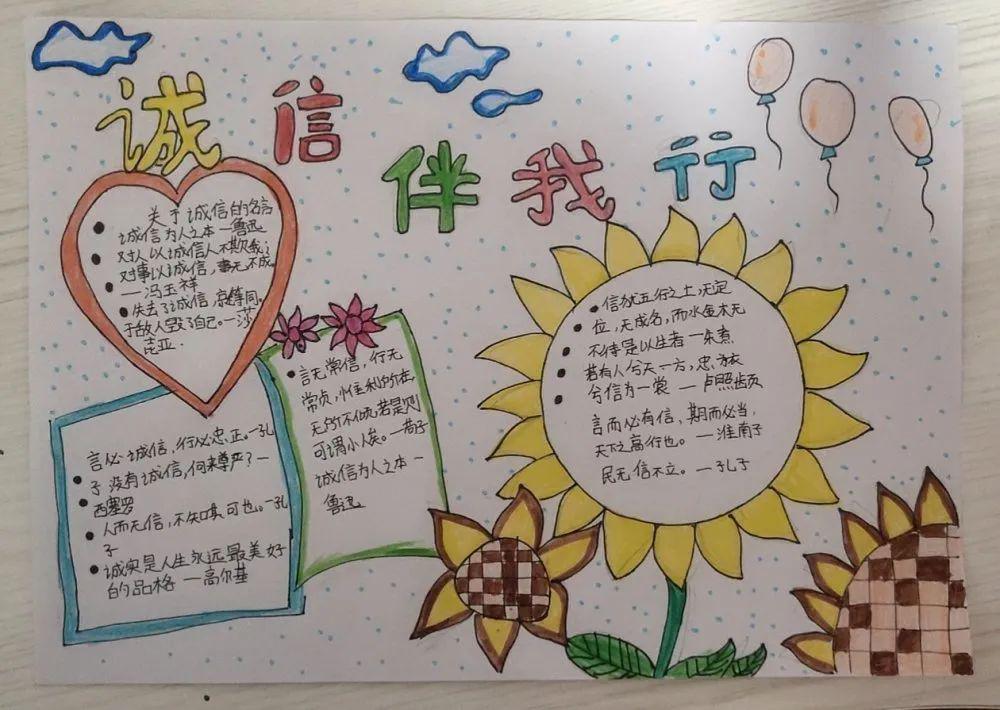 诚信伴我行
关于诚信的名言
诚信为人之本一鲁迅
对人以诚信人不欺我;
对事以诚信,事无不成。
——冯玉祥
失去了诚信,就等同。
于敌人毁了自己。—莎
言必诚信,行必忠正。—孔
子没有诚信,何来尊严?—
西塞罗
人而无信,不知其可也。—孔
子
诚实是人生永远最美好
的品格 —高尔基
言无常信,行无
常贞,惟利所在
无所不倾,若是则
可谓小人矣。—荀子
诚信为人之本—
鲁迅
信犹五行之土,无定
位,无成名,而水金木无
不待是以生者—朱熹
若有人兮天一方,忠为衣
兮信为裳 —卢照邻
言而必有信,期而必当,
天下之高行也。—淮南子
民无信不立。—孔子